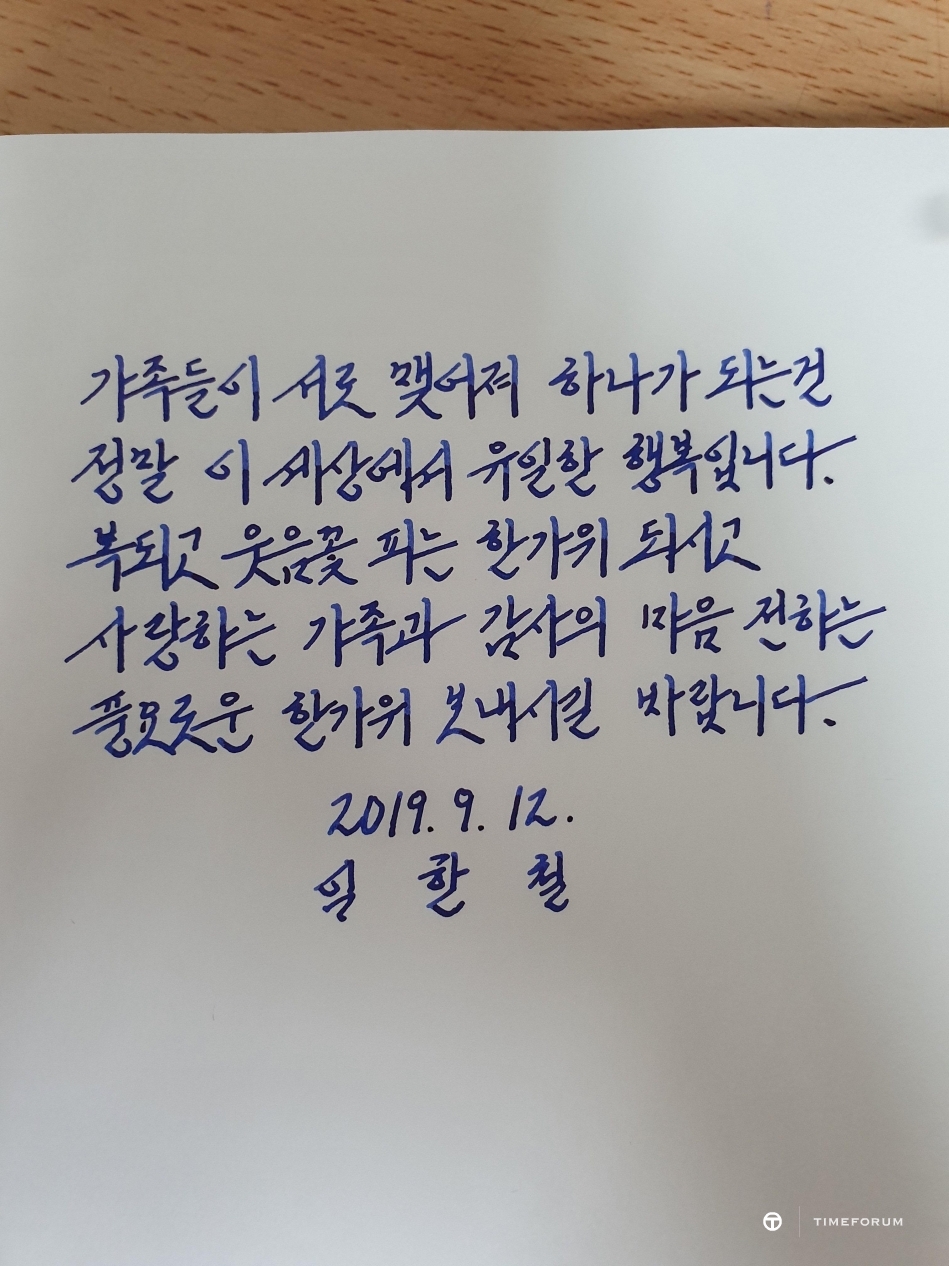 가족들이 서로 맺어져 하나가 되는건
정말 이 세상에서 유일한 행복입니다.
복되고 웃음꽃 피는 한가위 되시고
사랑하는 가족과 감사의 마음 전하는
풍요로운 한가위 보내시길 바랍니다.
2019. 9. 12.
한 철
TIMEFORUM